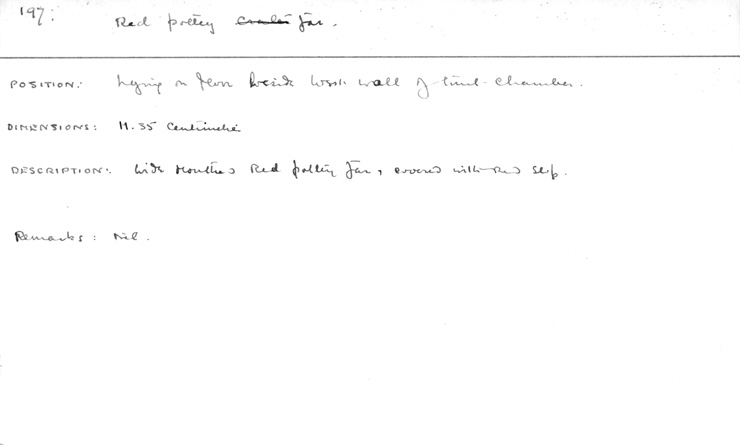 197:
Red pottery Jar.
POSITION: Lying on floor beside West wall of first-chamber.
DIMENSIONS: H. 35 Centimetres
DESCRIPTION: Wide mouthed Red pottery Jar, covered with red slip.
Remarks: Nil.